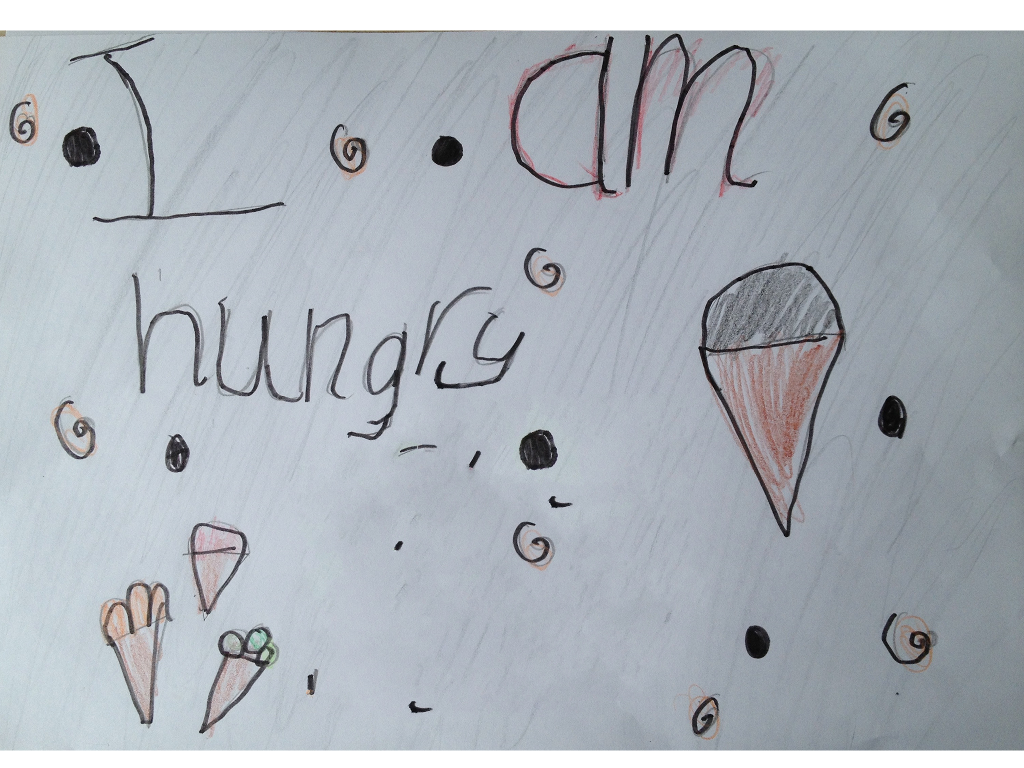 I am
hungry